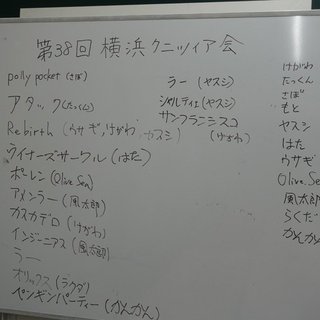 第38回 横浜クニツィア会
polly pocket (さぼ)
アタック(たっくん)
Rebirth (ウサギ,けがわ,ヤスシ)
ウイナーズサークル(はた)
ポーレン(Olive.Sea)
アメンラー(風太郎)
カスカデロ(けがわ)
インジーニアス(風太郎)
ラー
オリックス(ラクダ)
ペンギンパーティー(かんかん)
ラー (ヤスシ)
シャルティエ(ヤスシ)
サンフランシスコ
(けがわ)
けがわ
たっくん
さぼ
もと
ヤスシ
はた
ウサギ
Olive.Sea
風太郎
らくだ
かんかん